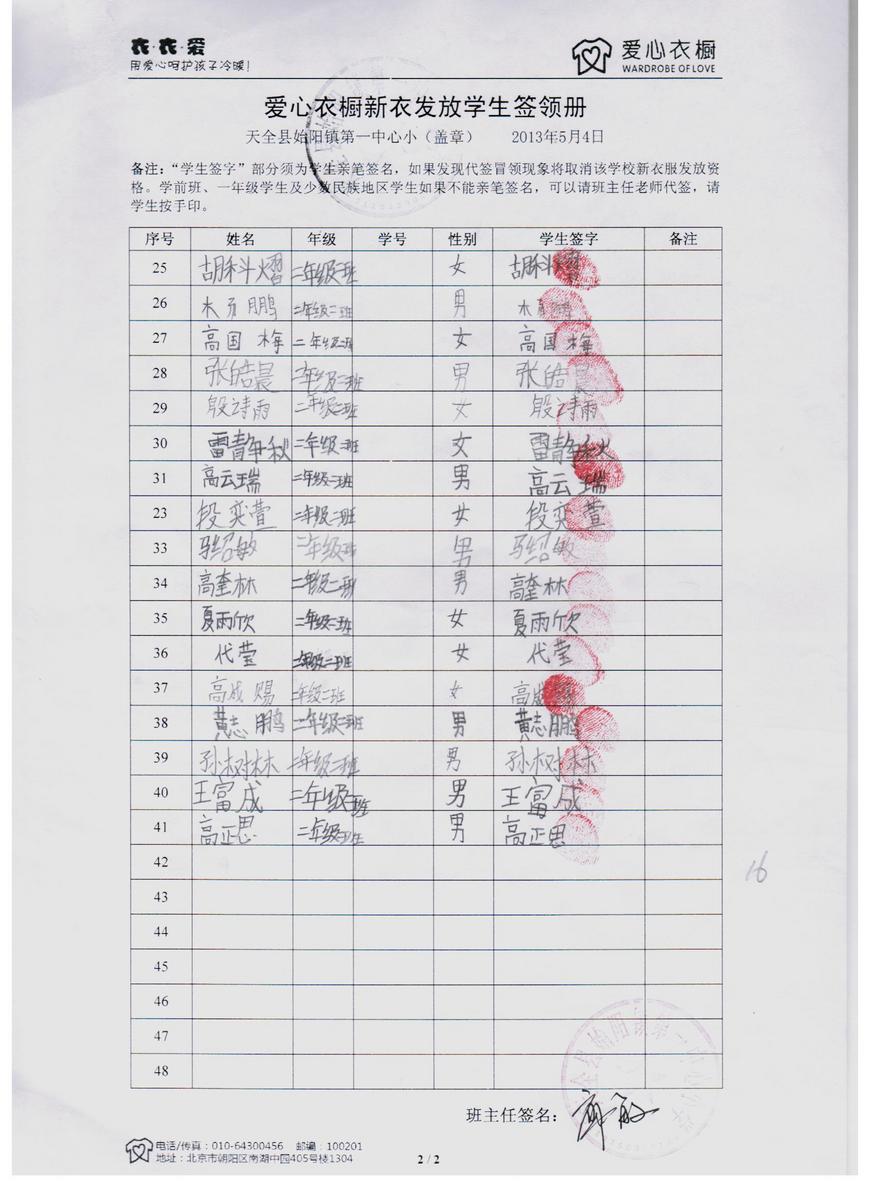 衣·衣·爱
用爱心呵护孩子冷暖！
爱心衣橱
WARDROBE OF LOVE
爱心衣橱新衣发放学生签领册
天全县始阳镇第一中心小（盖章） 2013年5月4日
备注：“学生签字”部分须为学生亲笔签名，如果发现代签冒领现象将取消该学校新衣服发放资
格。学前班、一年级学生及少数民族地区学生如果不能亲笔签名，可以请班主任老师代签，请
学生按手印。
序号 姓名 年级 学号 性别 学生签字 备注
25 胡科熠 二年级二班 女 胡科熠
26 二年级二班 男
27 高国梅 二年级二班 女 高国梅
28 张皓晨 二年级二班 男 张皓晨
29 殷诗雨 二年级二班 女 殷诗雨
30 雷静秋 二年级二班 女 雷静秋
31 高云瑞 二年级二班 男 高云瑞
23 段奕萱 二年级二班 女 段奕萱
33 马绍敏 二年级二班 男 马绍敏
34 高奎林 二年级二班 男 高奎林
35 夏雨欣 二年级二班 女 夏雨欣
36 代莹 二年级二班 女 代莹
37 高成赐 二年级二班 女 高成赐
38 黄志鹏 二年级二班 男 黄志鹏
39 孙树林 二年级二班 男 孙树林
40 王富成 二年级二班 男 王富成
41 高正思 二年级二班 男 高正思
42
43
44
45
46
47
48
16
班主任签名：
电话/传真：010-64300456 邮编：100201
地址：北京市朝阳区南湖中园405号楼1304
2 / 2